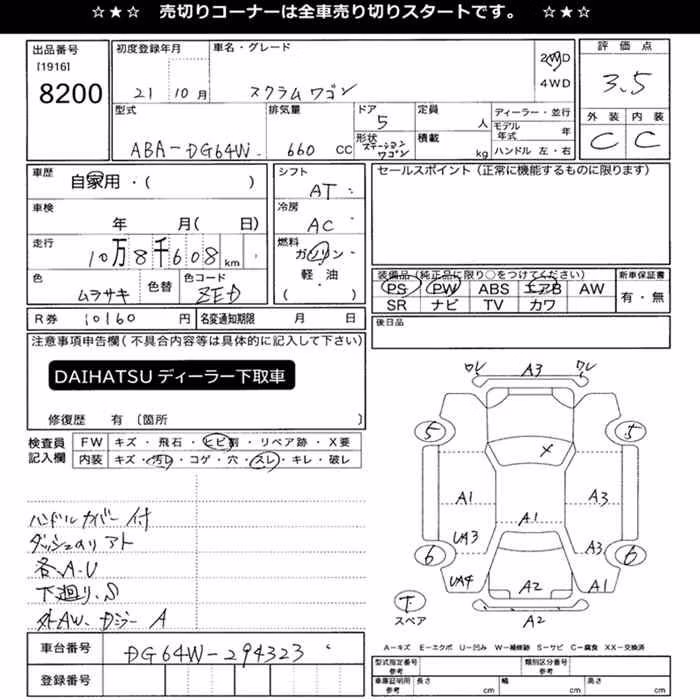 ☆★☆ 売切りコーナーは全車売り切りスタートです。 ☆★☆
出品番号
[1916]
8200
初度登録年月
21 10月
車名・グレード
スクラム ワゴン
2WD
4WD
評価点
3.5
外装 内装
C C
型式
ABA-DG64W
排気量
660 cc
ドア
5
形状
ステーションワゴン
定員
人
積載
kg
ディーラー・並行
モデル年式 年
ハンドル 左・右
車歴
自家用・( )
車検
年 月( 日)
走行
10万8千608km
色
ムラサキ
色替
色コード
ZED
シフト
AT
冷房
AC
燃料
ガソリン
軽・油
( )
セールスポイント(正常に機能するものに限ります)
装備品(純正品に限り○をつけてください)
PS PW ABS エアB AW
SR ナビ TV カワ
新車保証書
有・無
R券 10160 円 名変通知期限 月 日
後日品
注意事項申告欄(不具合内容等は具体的に記入して下さい)
DAIHATSU ディーラー下取車
修復歴 有 〔箇所 〕
検査員記入欄
FW キズ・飛石・ヒビ割・リペア跡・X要
内装 キズ・汚レ・コゲ・穴・スレ・キレ・破レ
ハンドルカバー付
ダッシュのリアト
各A.U
下廻り.S
外AW、
A
車台番号 DG64W-294323
登録番号
ワレ A3 ワレ
5 5
X
A1 A3
A1
UA3 A3
6 6
UA4 A2 A1
A2
下
スペア
A-キズ E-エクボ U-凹み W-補修跡 S-サビ C-腐食 XX-交換済
型式指定番号 参考
類別区分番号 参考
車庫証明用 参考 長さ cm 幅 cm 高さ cm